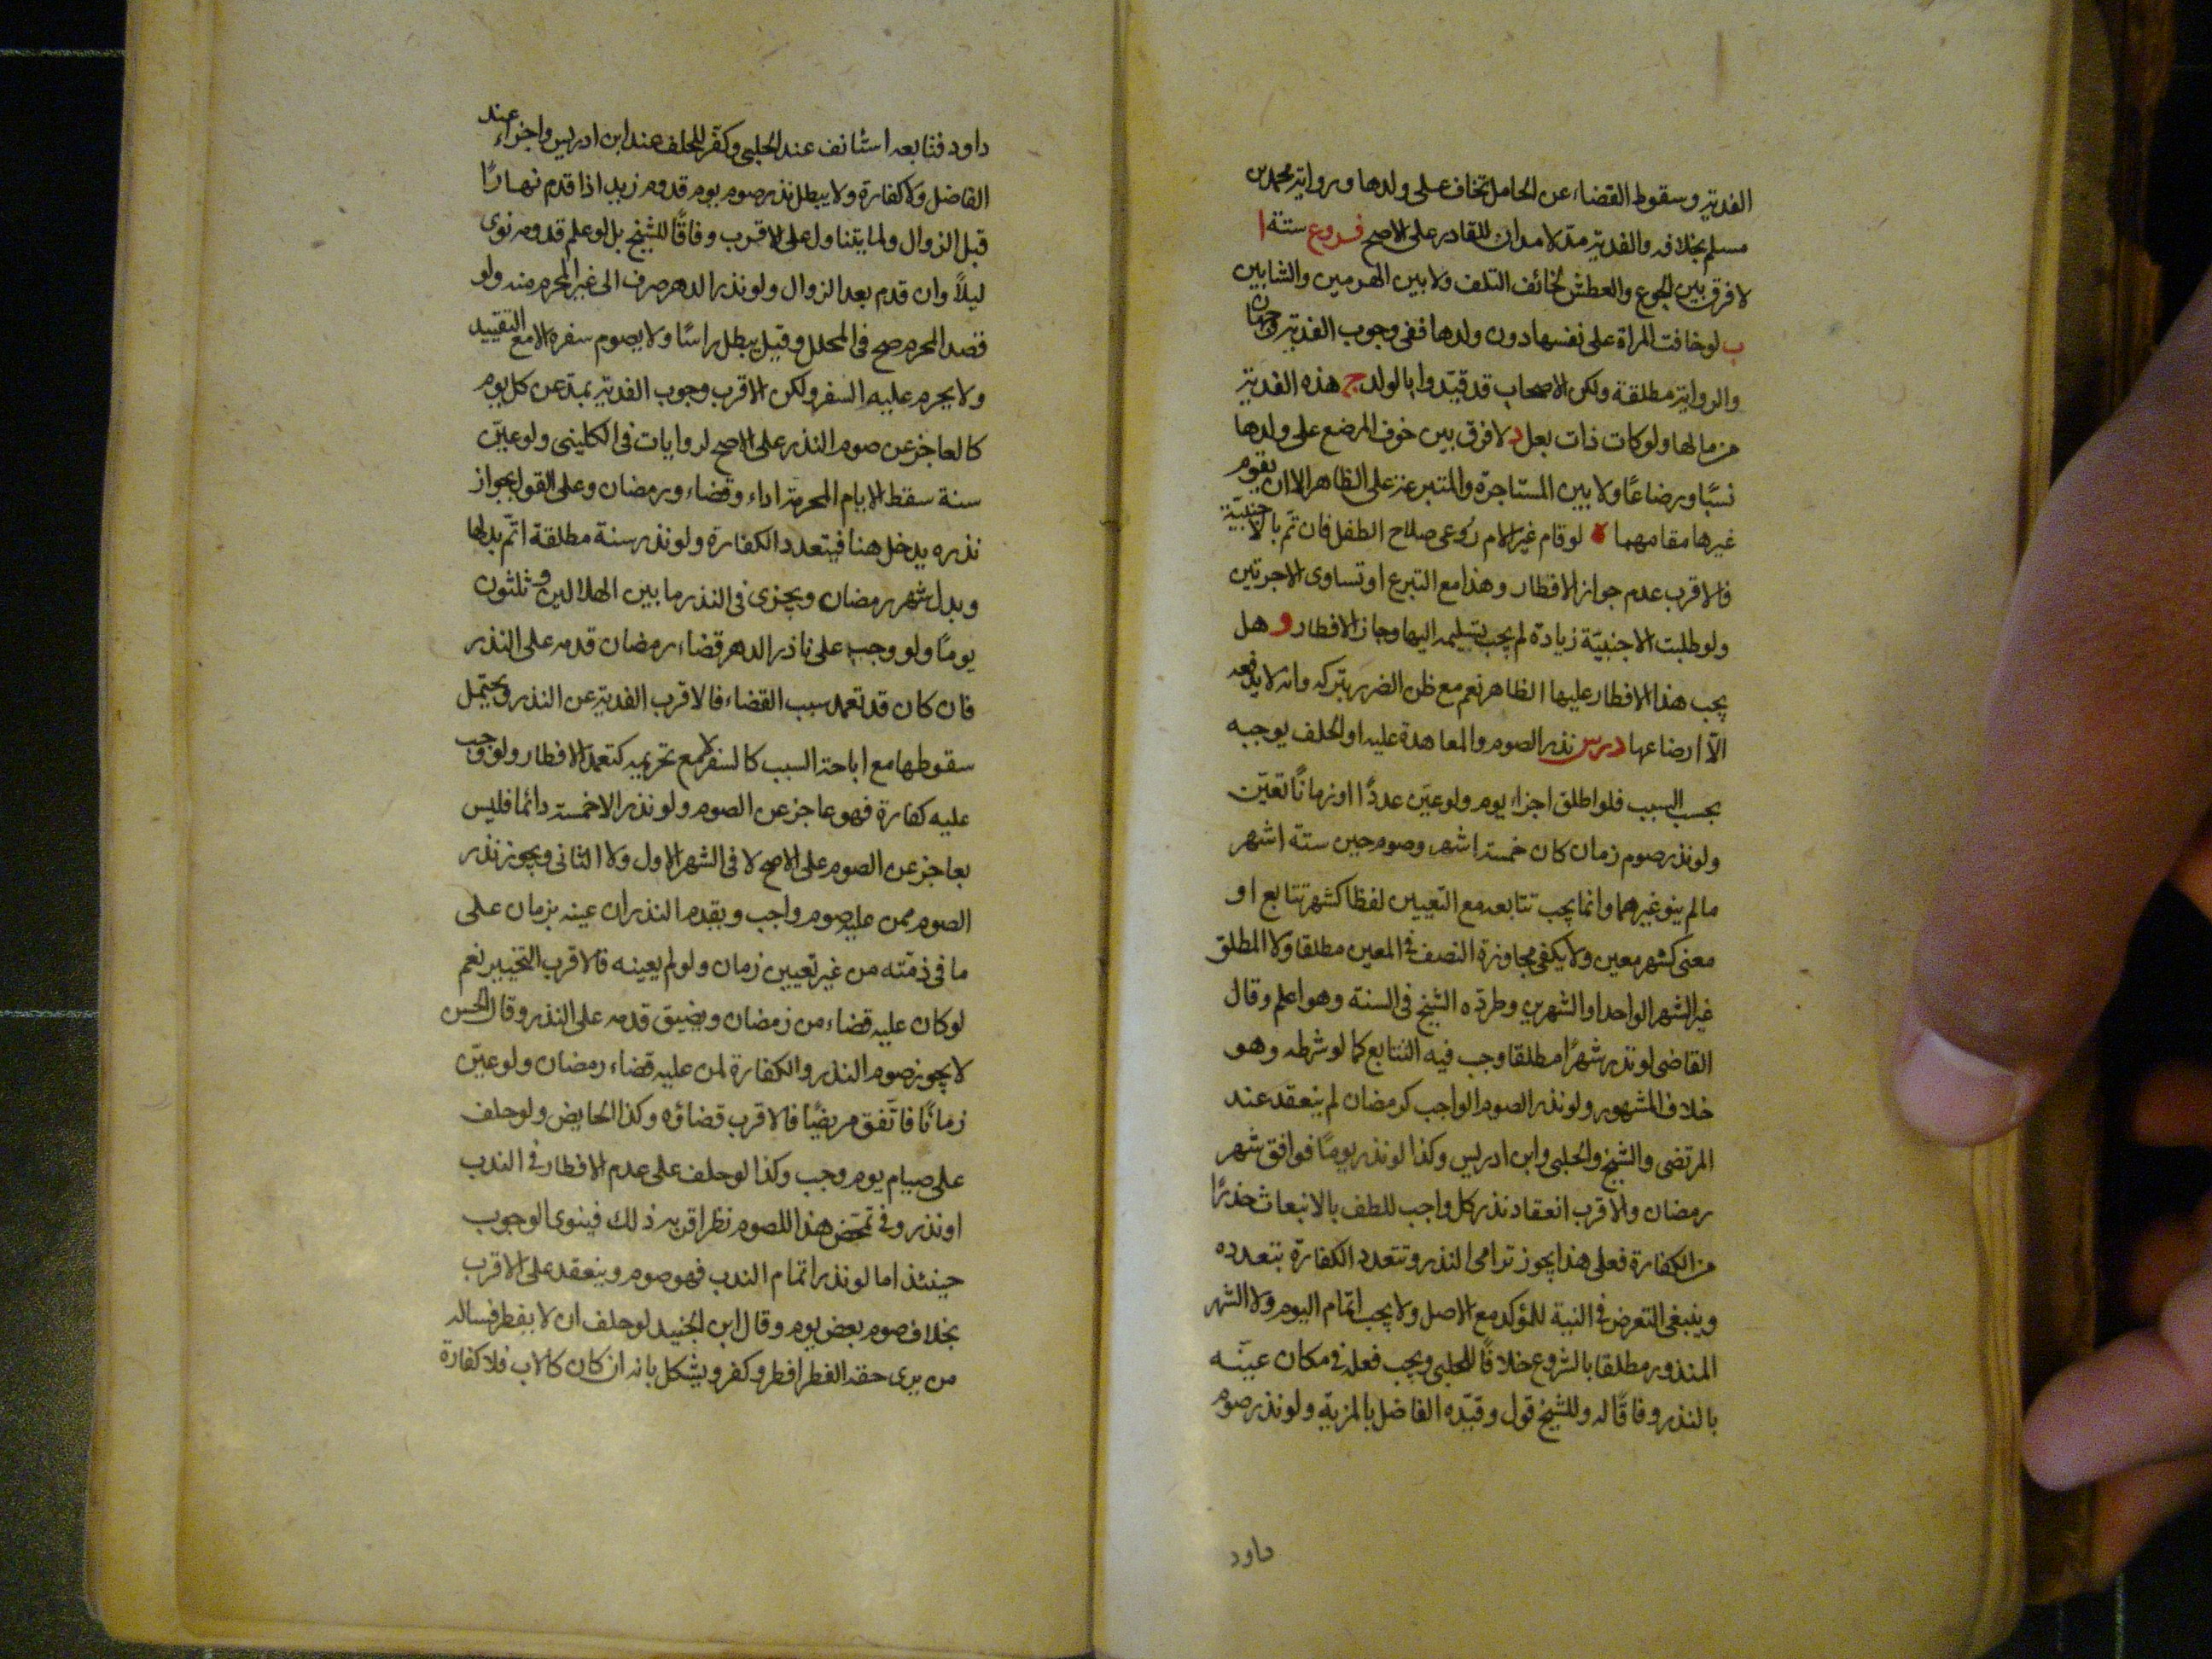 الفدية وسقوط القضاء عن الحامل تخاف على ولدها ورواية محمد بن
مسلم بخلافه والفدية مد لا مدان للقادر على الاصح فروع ستة ا
لا فرق بين الجوع والعطش لخائف التلف ولا بين الهرمين والشابين
ب لو خافت المراة على نفسها دون ولدها ففى وجوب الفدية وجهان
والرواية مطلقة ولكن الاصحاب قد قيّدوا بالولد ج هذه الفدية
من مالها ولو كات ذات بعل د لا فرق بين خوف المرضع على ولدها
نسبًا ورضاعًا ولا بين المستاجرة والمتبرعة على الظاهر الا ان يقوم
غيرها مقامهما ه لو قام غير الام روعى صلاح الطفل فان تم بالاجنبيّة
فالاقرب عدم جواز الافطار وهذا مع التبرع او تساوى الاجرتين
ولو طلبت الاجنبيّة زيادة لم يجب تسليمه اليها وجاز الافطار و هل
يجب هذا الافطار عليها الظاهر نعم مع ظن الضرر بتركه وانه لا يدفعه
الّا ارضاعها درس نذر الصوم والمعاهدة عليه او الحلف يوجبه
بحسب السبب فلو اطلق اجزاء يوم ولو عيّن عددًا او زمانًا تعيّن
ولو نذر صوم زمان كان خمسة اشهر وصوم حين ستة اشهر
ما لم ينو غيرهما وانما يجب تتابعه مع التعيين لفظا كشهر تتابع او
معنى كشهر معين ولا يكفى مجاوزة النصف فى المعين مطلقا ولا المطلق
غير الشهر الواحد او الشهرين وطرده الشيخ فى السنة وهو اعلم وقال
القاضى لو نذر شهرًا مطلقا وجب فيه التتابع كما لو شرطه وهو
خلاف المشهور ولو نذر الصوم الواجب كرمضان لم ينعقد عند
المرتضى والشيخ والحلبى وابن ادريس وكذا لو نذر يومًا فوافق شهر
رمضان والاقرب انعقاد نذر كل واجب للطف بالانبعاث حذرًا
من الكفارة فعلى هذا يجوز ترامى النذر وتتعدد الكفارة بتعدده
وينبغى التعرض فى النية للمؤكد مع الاصل ولا يجب اتمام اليوم ولا الشهر
المنذور مطلقا بالشروع خلافًا للحلبى ويجب فعله فى مكان عيّنه
بالنذر وفاقًا له وللشيخ قول وقيّده الفاضل بالمزية ولو نذر صوم
داود
داود فتابعه استانف عند الحلبى وكفّر للحلف عند ابن ادريس واجزاء عند
الفاضل ولا كفارة ولا يبطل نذر صوم يوم قدوم زيد اذا قدم نهارًا
قبل الزوال ولما يتناول على الاقرب وفاقًا للشيخ بل لو علم قدومه نوى
ليلًا وان قدم بعد الزوال ولو نذر الدهر صرف الى غير المحرم منه ولو
قصد المحرم صح فى المحلل وقيل يبطل راسًا ولا يصوم سفره الا مع التقييد
ولا يحرم عليه السفر ولكن الاقرب وجوب الفدية بمدّ عن كل يوم
كالعاجز عن صوم النذر على الاصح لروايات فى الكلينى ولو عيّن
سنة سقط الايام المحرمة اداء وقضاء ورمضان وعلى القول بجواز
نذره يدخل هنا فيتعدد الكفارة ولو نذر سنة مطلقة اتمّ بدلها
وبدل شهر رمضان ويجزى فى النذر ما بين الهلالين وثلثون
يومًا ولو وجب على ناذر الدهر قضاء رمضان قدمه على النذر
فان كان قد تعمد سبب القضاء فالاقرب الفدية عن النذر ويحتمل
سقوطها مع اباحة السبب كالسفر لا مع تحريمه كتعمد الافطار ولو وجب
عليه كفارة فهو عاجز عن الصوم ولو نذر الا خمسة دائما فليس
بعاجز عن الصوم على الاصح لا فى الشهر الاول ولا الثانى ويجوز نذر
الصوم ممن عليه صوم واجب ويقدم النذر ان عينه بزمان على
ما فى ذمّته من غير تعيين زمان ولو لم يعينه فالاقرب التخيير نعم
لو كان عليه قضاء من رمضان ويضيق قدمه على النذر وقال الحسن
لا يجوز صوم النذر والكفارة لمن عليه قضاء رمضان ولو عيّن
زمانًا فاتّفق مريضًا فالاقرب قضاؤه وكذا الحايض ولو حلف
على صيام يوم وجب وكذا لو حلف على عدم الافطار فى الندب
او نذر وفى تمحّض هذا للصوم نظر اقربه ذلك فينوى الوجوب
حينئذ اما لو نذر اتمام الندب فهو صوم وينعقد على الاقرب
بخلاف صوم بعض يوم وقال ابن الجنيد لو حلف ان لا يفطر فساله
من يرى حقه الفطر افطر وكفر ويشكل بانه ان كان كالاب فلا كفارة